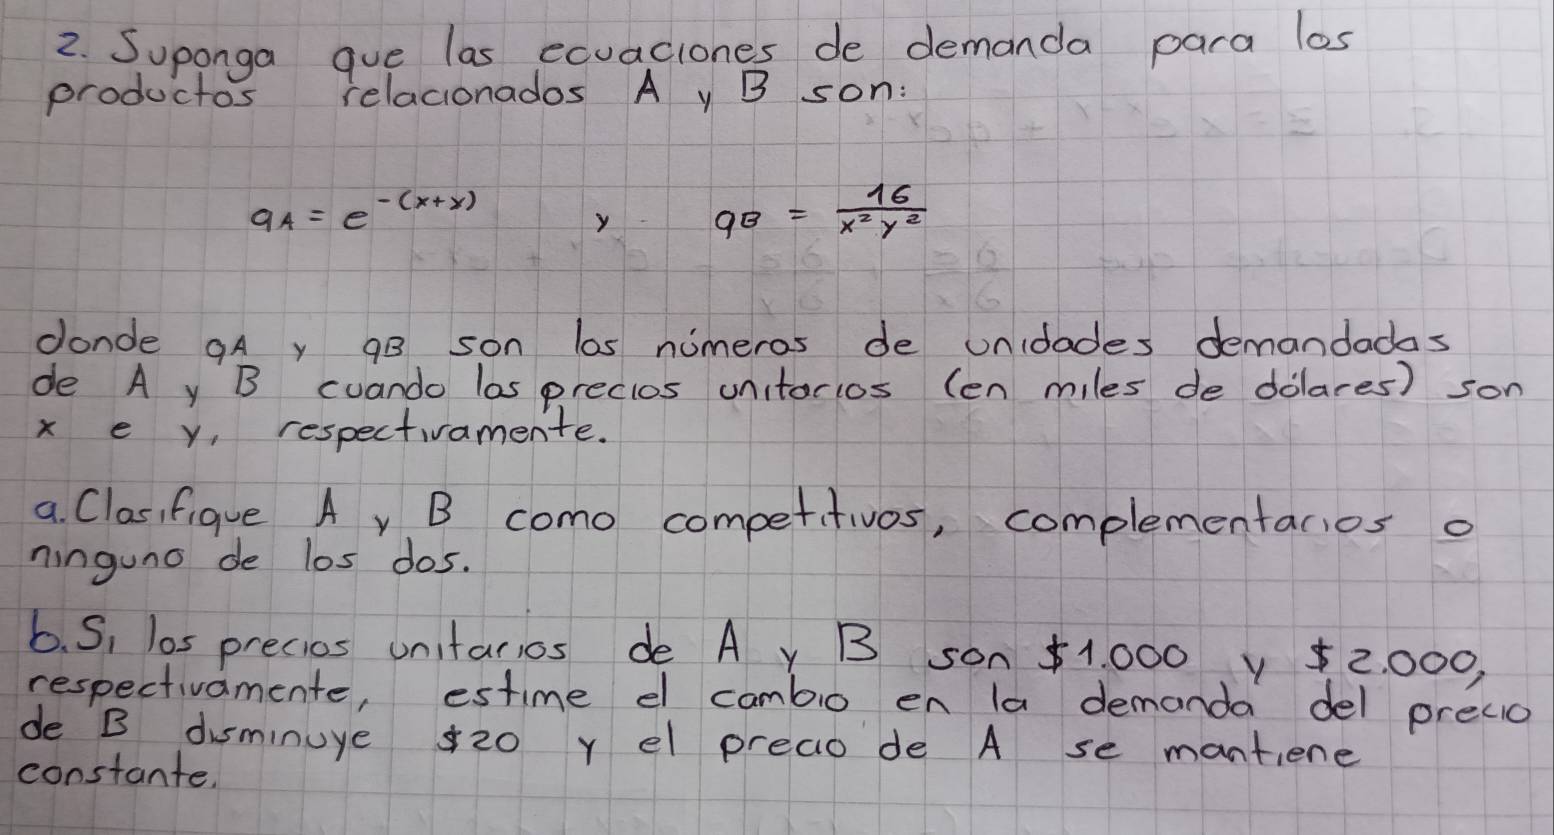 2. Suponga que las ecuaciones de demanda para los
productos relacionados A y B son:
qA = e^-(x+y) y qB = 16/x² y²
donde qA y qB son los números de unidades demandadas
de A y B cuando los precios unitarios (en miles de dólares) son
x e y, respectivamente.
a. Clasifique A y B como competitivos, complementarios o
ninguno de los dos.
b. Si los precios unitarios de A y B son $1.000 y $2.000,
respectivamente, estime el cambio en la demanda del precio
de B disminuye $20 y el precio de A se mantiene
constante.